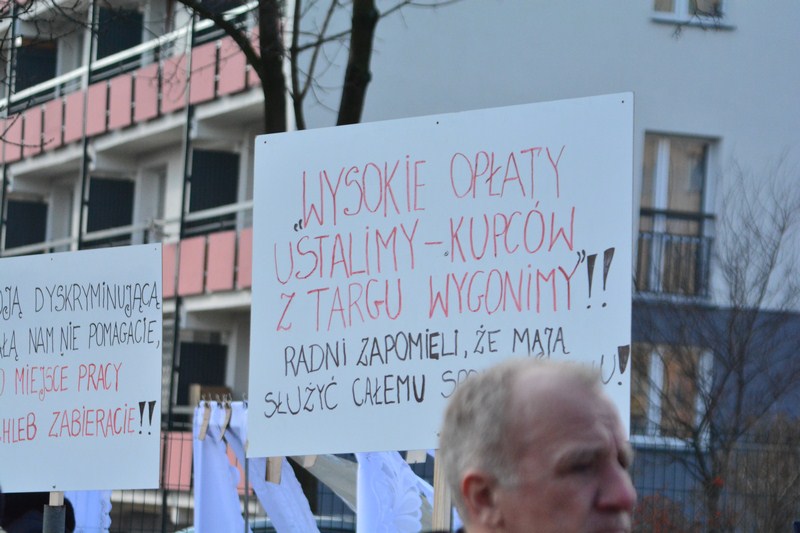 OJĄ DYSKRYMINUJĄCĄ
AŁĄ NAM NIE POMAGACIE,
O MIEJSCE PRACY
HLEB ZABIERACIE!!
„WYSOKIE OPŁATY
USTALIMY – KUPCÓW
Z TARGU WYGONIMY”!!
RADNI ZAPOMIELI, ŻE MAJĄ
SŁUŻYĆ CAŁEMU